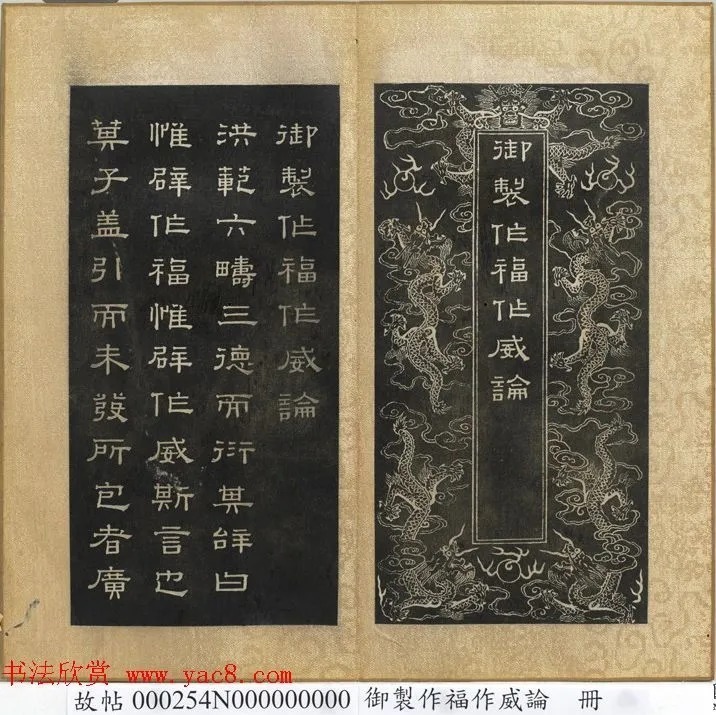 御製作福作威論
御製作福作威論
洪範六疇三德而衍其辭曰
惟辟作福惟辟作威斯言也
箕子盖引而未發所包者廣
书法欣赏 www.yac8.com
故帖 000254N000000000 御製作福作威論 冊